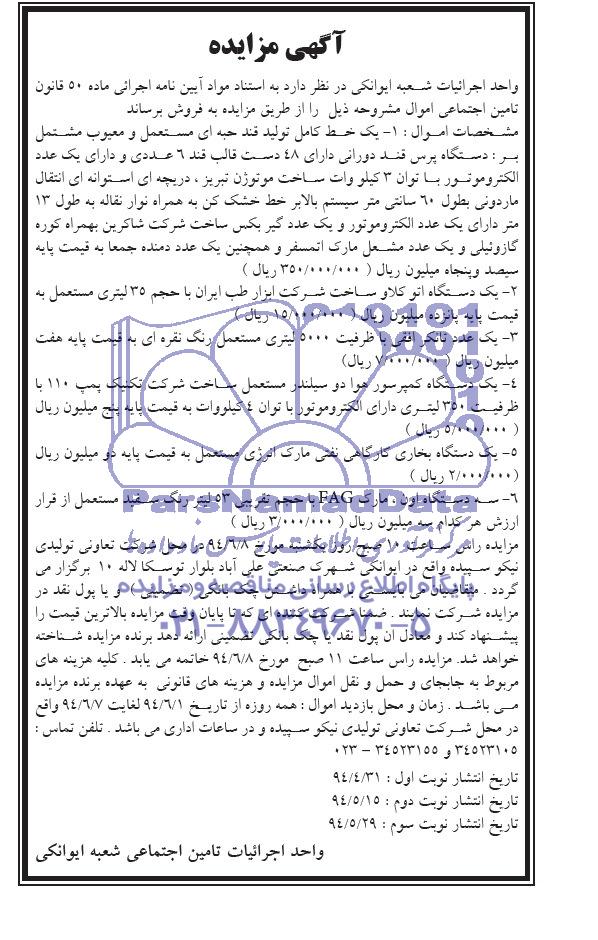 آگهی مزایده
واحد اجرائیات شعبه ایوانکی در نظر دارد به استناد مواد آیین نامه اجرائی ماده ۵۰ قانون
تامین اجتماعی اموال مشروحه ذیل را از طریق مزایده به فروش برساند
مشخصات اموال : ۱- یک خط کامل تولید قند حبه ای مستعمل و معیوب مشتمل
بر : دستگاه پرس قند دورانی دارای ۴۸ دست قالب قند ۶ عددی و دارای یک عدد
الکتروموتور با توان ۳ کیلو وات ساخت موتوژن تبریز ، دریچه ای استوانه ای انتقال
ماردونی بطول ۶۰ سانتی متر سیستم بالابر خط خشک کن به همراه نوار نقاله به طول ۱۳
متر دارای یک عدد الکتروموتور و یک عدد گیر بکس ساخت شرکت شاکرین بهمراه کوره
گازوئیلی و یک عدد مشعل مارک اتمسفر و همچنین یک عدد دمنده جمعا به قیمت پایه
سیصد وپنجاه میلیون ریال ( ۳۵۰/۰۰۰/۰۰۰ ریال )
۲- یک دستگاه اتو کلاو ساخت شرکت ابزار طب ایران با حجم ۳۵ لیتری مستعمل به
قیمت پایه پانزده میلیون ریال ( ۱۵/۰۰۰/۰۰۰ ریال )
۳- یک عدد تانکر افقی با ظرفیت ۵۰۰۰ لیتری مستعمل رنگ نقره ای به قیمت پایه هفت
میلیون ریال ( ۷/۰۰۰/۰۰۰ ریال)
۴- یک دستگاه کمپرسور هوا دو سیلندر مستعمل ساخت شرکت تکنیک پمپ ۱۱۰ با
ظرفیت ۳۵۰ لیتری دارای الکتروموتور با توان ۴ کیلووات به قیمت پایه پنج میلیون ریال
( ۵/۰۰۰/۰۰۰ ریال )
۵- یک دستگاه بخاری کارگاهی نفتی مارک انرژی مستعمل به قیمت پایه دو میلیون ریال
(۲/۰۰۰/۰۰۰ ریال )
۶- سه دستگاه اون ، مارک FAG با حجم تقریبی ۵۳ لیتر رنگ سفید مستعمل از قرار
ارزش هر کدام سه میلیون ریال ( ۳/۰۰۰/۰۰۰ ریال )
مزایده راس ساعت ۱۰ صبح روز یکشنبه مورخ ۹۴/۶/۸ در محل شرکت تعاونی تولیدی
نیکو سپیده واقع در ایوانکی شهرک صنعتی علی آباد بلوار توسکا لاله ۱۰ برگزار می
گردد . متقاضیان می بایستی با همراه داشتن چک بانکی ( تضمینی) و یا پول نقد در
مزایده شرکت نمایند . ضمنا شرکت کننده ای که تا پایان وقت مزایده بالاترین قیمت را
پیشنهاد کند و معادل آن پول نقد یا چک بانکی تضمینی ارائه دهد برنده مزایده شناخته
خواهد شد. مزایده راس ساعت ۱۱ صبح مورخ ۹۴/۶/۸ خاتمه می یابد . کلیه هزینه های
مربوط به جابجای و حمل و نقل اموال مزایده و هزینه های قانونی به عهده برنده مزایده
می باشد . زمان و محل بازدید اموال : همه روزه از تاریخ ۹۴/۶/۱ لغایت ۹۴/۶/۷ واقع
در محل شرکت تعاونی تولیدی نیکو سپیده و در ساعات اداری می باشد . تلفن تماس :
۳۴۵۲۳۱۰۵ و ۳۴۵۲۳۱۵۵ – ۰۲۳
تاریخ انتشار نوبت اول : ۹۴/۴/۳۱
تاریخ انتشار نوبت دوم : ۹۴/۵/۱۵
تاریخ انتشار نوبت سوم : ۹۴/۵/۲۹
واحد اجرائیات تامین اجتماعی شعبه ایوانکی
ParsNamadData
پایگاه اطلاع رسانی مناقصه و مزایده
۰۲۱-۸۸۳۴۹۶۷۰-۵